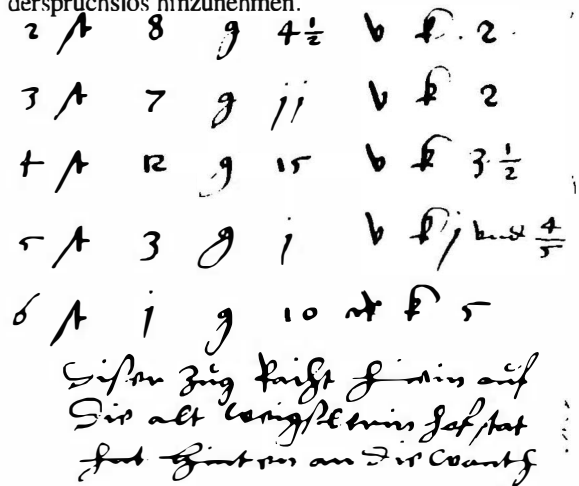 derspruchslos hinzunehmen.
2 st 8 g 4½ b k. 2.
3 st 7 g jj b k 2
4 st 12 g 15 b k 3½
5 st 3 g j b k j vnd 4/5
6 st j g 10 k 5
Diser Zug Raicht hinein auf
Die alt hofstat
hinten an Die Wanth